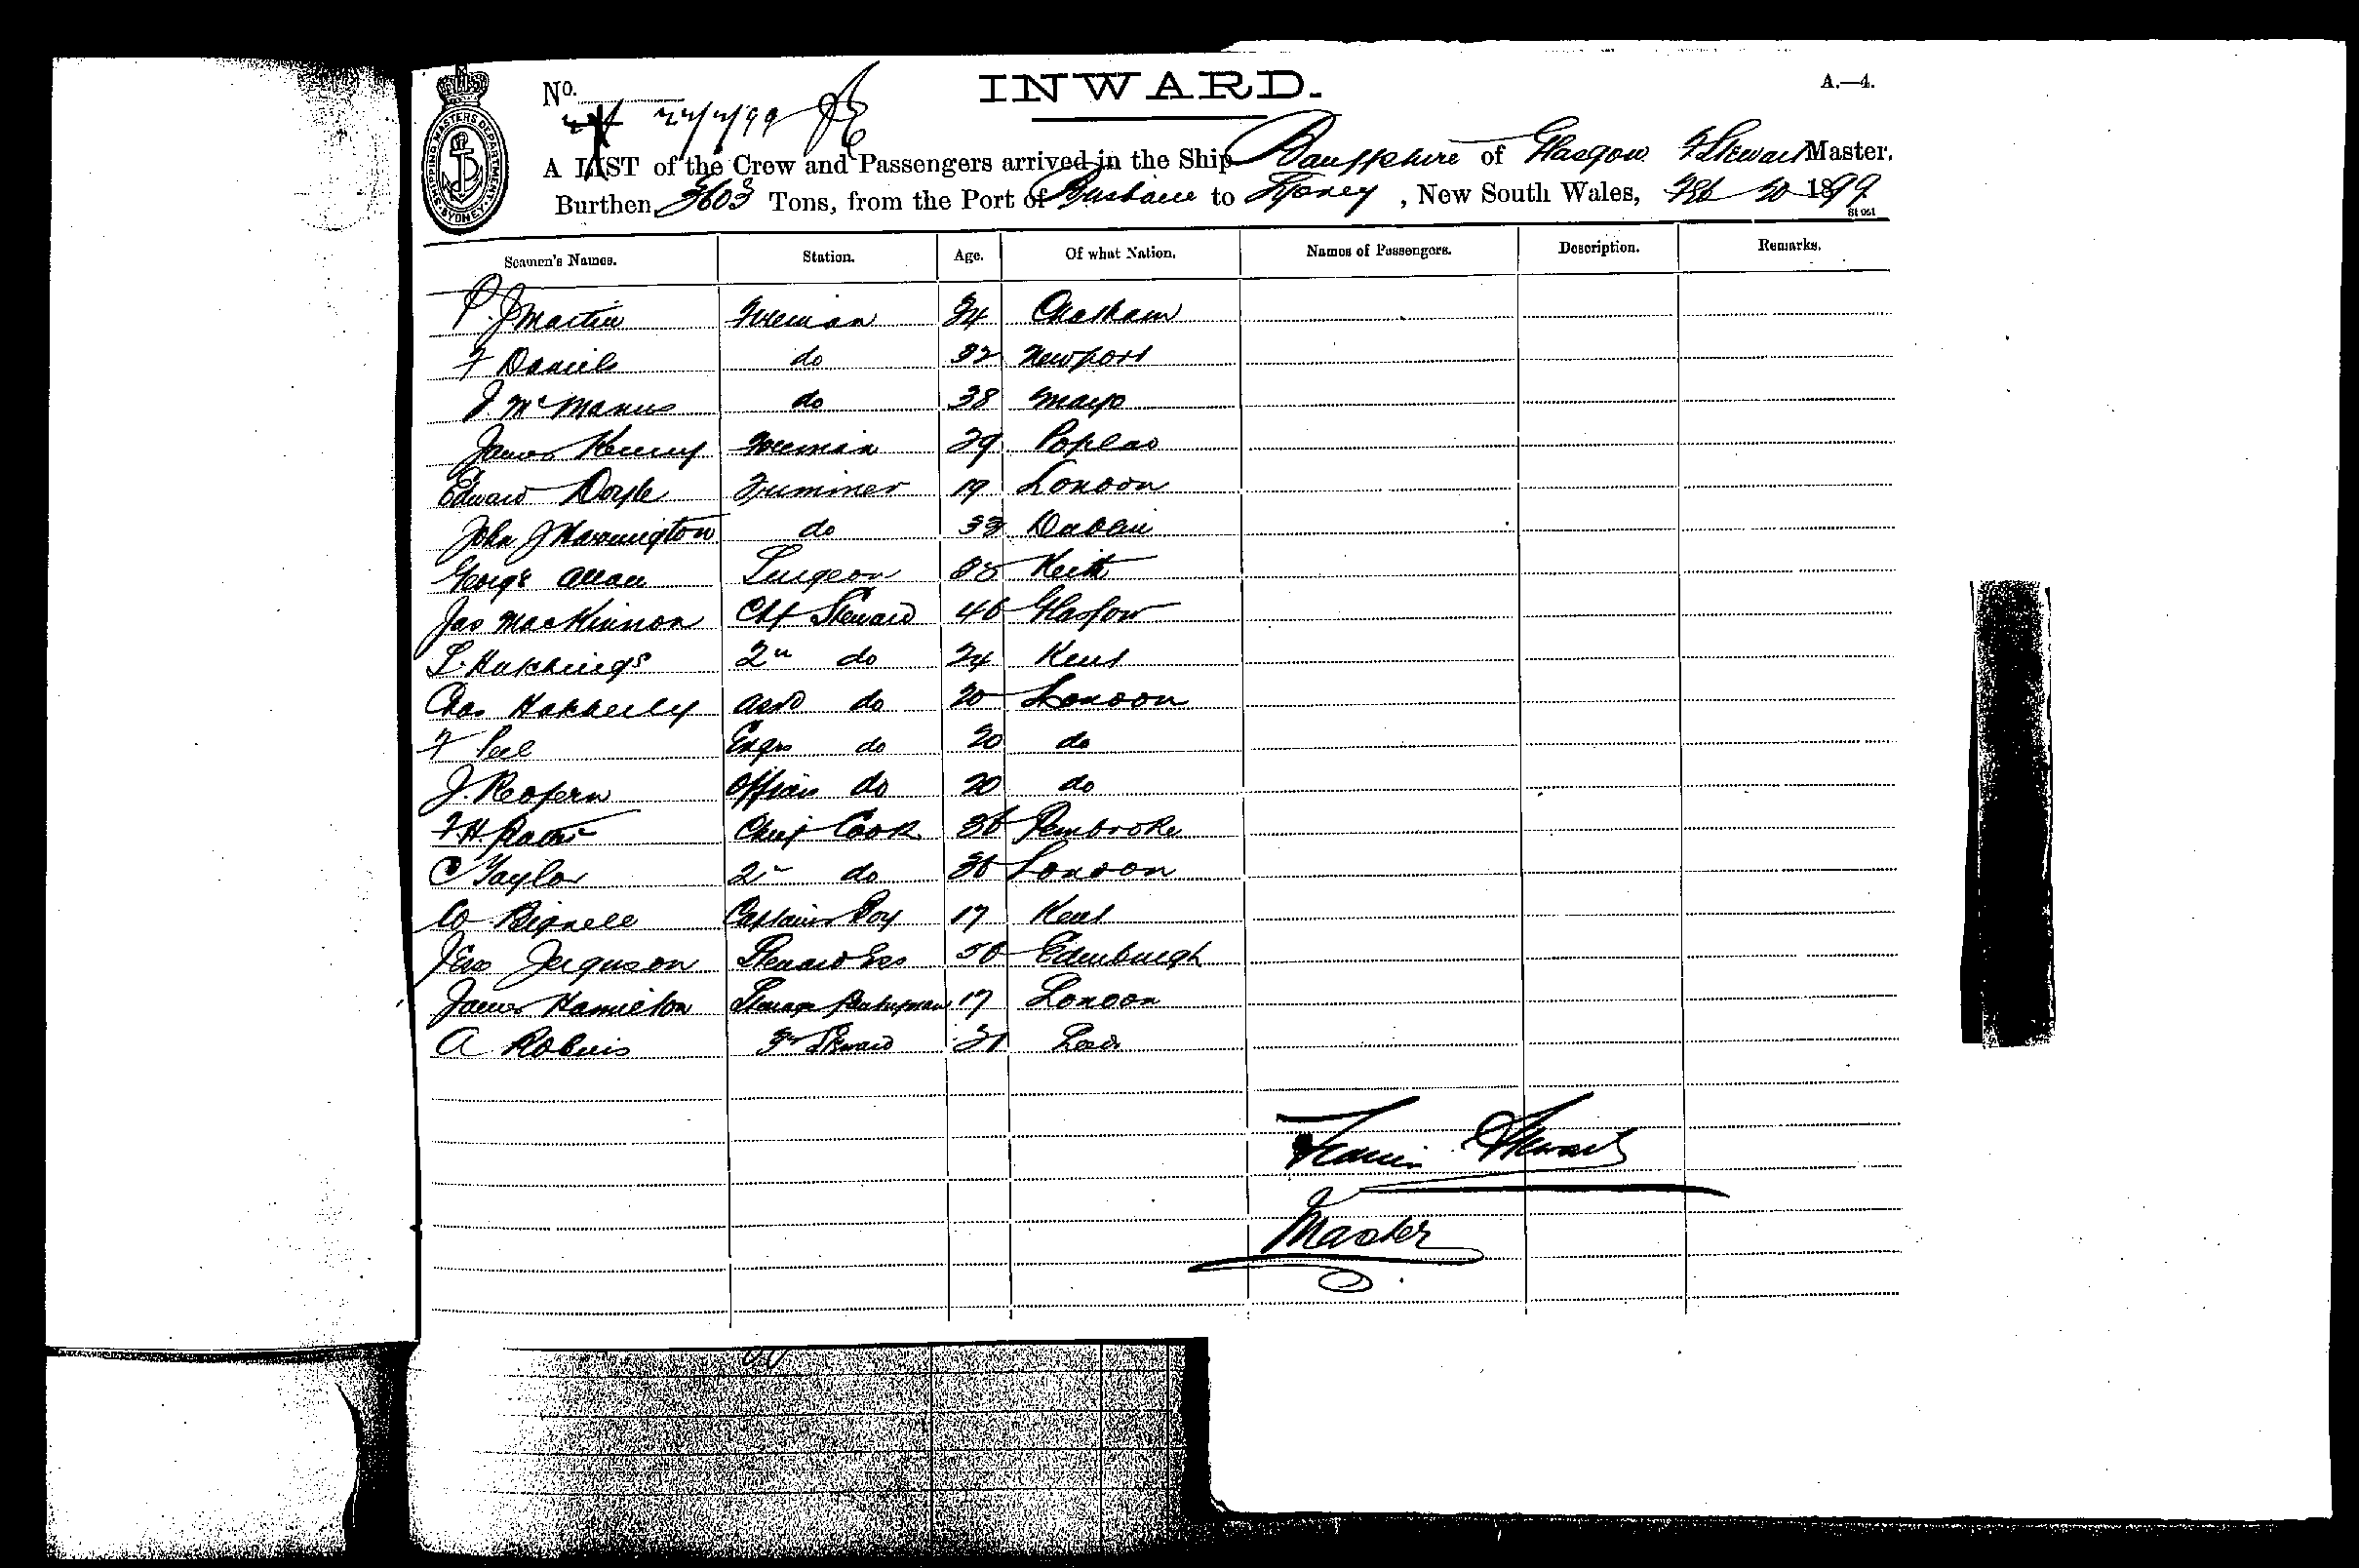 No.
22/2/99
INWARD.
A.—4.
SHIPPING MASTERS DEPARTMENT. SYDNEY.
A LIST of the Crew and Passengers arrived in the Ship Banffshire of Glasgow F Stewart Master,
Burthen 3603 Tons, from the Port of Brisbane to Sydney, New South Wales, Feb 20 1899
Seamen's Names. Station. Age. Of what Nation. Names of Passengers. Description. Remarks.
P. J Martin Fireman 34 Chatham
F Daniels do 32 Newport
J McManus do 38 Mayo
James Kenny Fireman 29 Poplar
Edward Doyle Trimmer 19 London
John J Harrington do 33 Dublin
George Allan Surgeon Keith
Jas MacKinnon Chf Steward 46 Glasgow
Hutchings 2n do 24 Kent
Chas do 20 London
F Peel Engrs do 20 do
J. Redfern Officers do 20 do
F.H. Chief Cook 36 Pembroke
C Taylor 2n do 36 London
W Bignell Captains Boy 17 Kent
Ferguson Stewardess Edinburgh
James Hamilton 17 London
A Robins 3r Steward Leeds
Stewart
Master